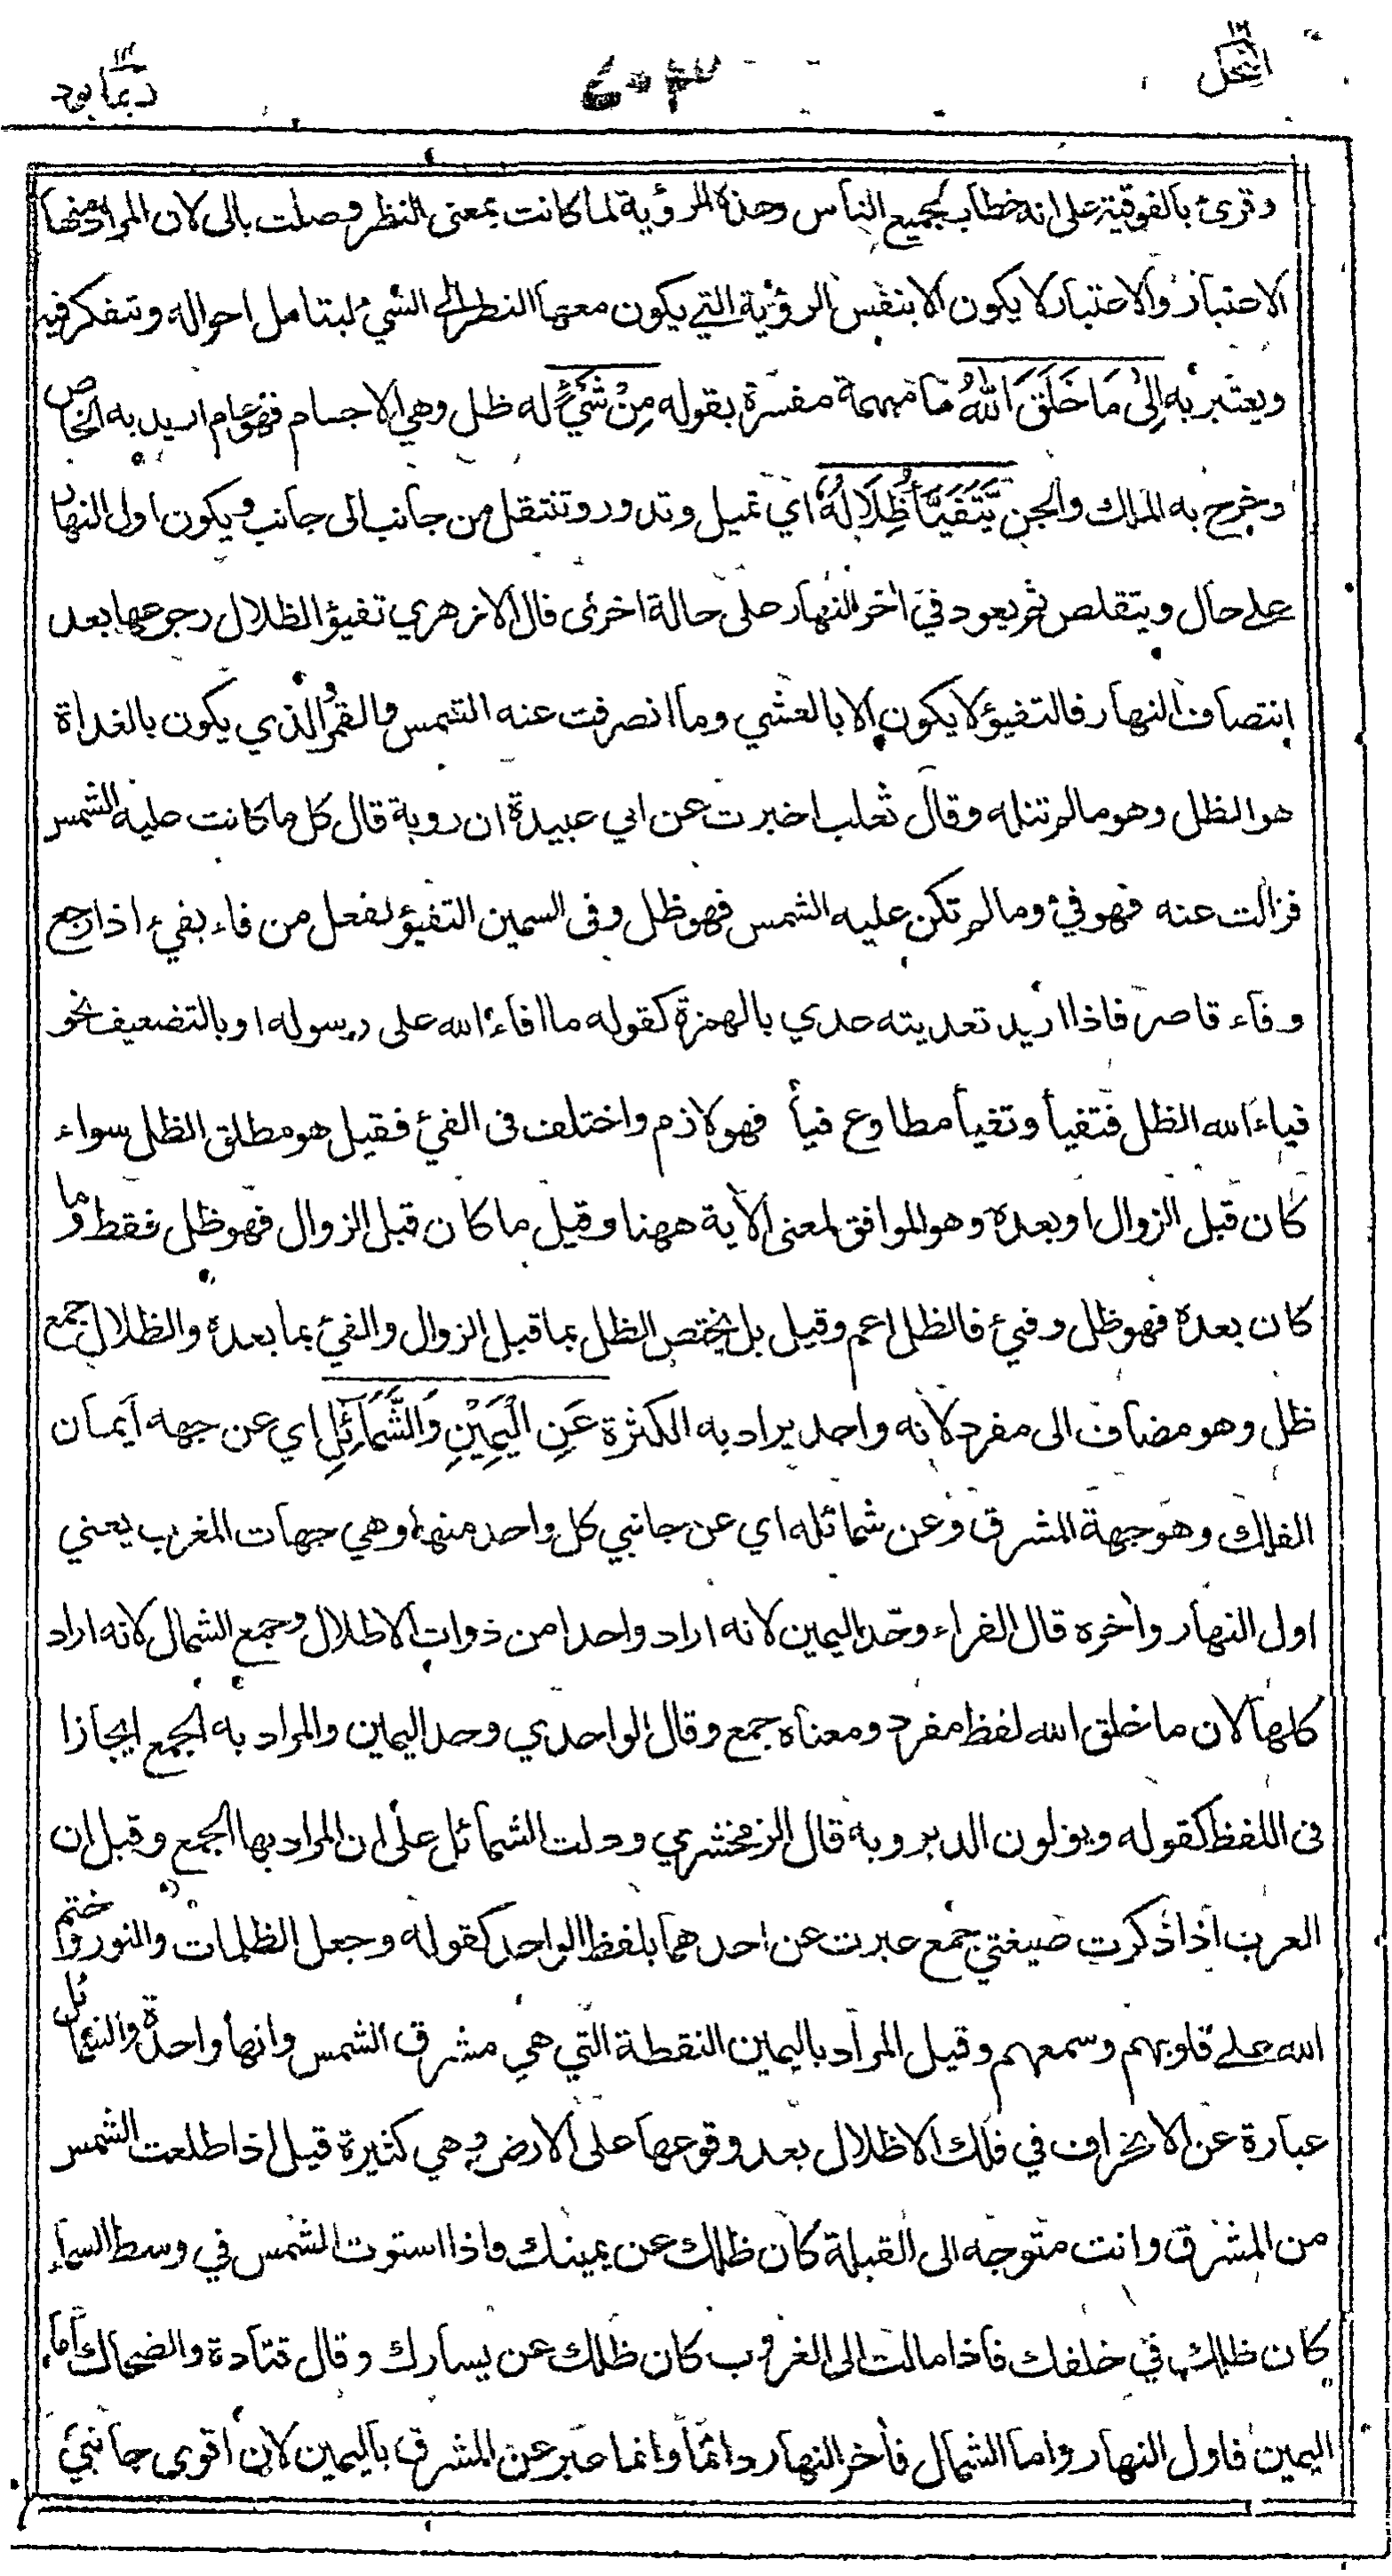 النحل ١٦
٤٠٣
ربما يود ١٤
وقرئ بالفوقية على انه خطاب لجميع الناس وهذه الرؤية لما كانت بمعنى النظر وصلت بالى لان المراد منها
الاعتبار والاعتبار لا يكون الا بنفس الرؤية التي يكون معها النظر الى الشيء ليتامل احواله ويتفكر فيه
ويعتبر به إِلَىٰ مَا خَلَقَ اللّٰهُ ما مبهمة مفسرة بقوله مِنْ شَيْءٍ له ظل وهي الاجسام فهو عام اريد به الخاص
وخرج به الملك والجن يَتَفَيَّأُ ظِلَالُهُ اي تميل وتدور وتنتقل من جانب الى جانب ويكون اول النهار
على حال ويتقلص ثم يعود في اخر النهار على حالة اخرى قال الازهري تفيؤ الظلال رجوعها بعد
انتصاف النهار فالتفيؤ لا يكون الا بالعشي وما انصرفت عنه الشمس والقمر الذي يكون بالغداة
هو الظل وهو ما لم تنله وقال ثعلب اخبرت عن ابي عبيدة ان روبة قال كل ما كانت عليه الشمس
فزالت عنه فهو فيء وما لم تكن عليه الشمس فهو ظل وفي السمين التفيؤ تفعل من فاء يفيء اذا رجع
وفاء قاصر فاذا اريد تعديته عدي بالهمزة كقوله ما افاء الله على رسوله او بالتضعيف نحو
فياء الله الظل فتفيأ وتفيأ مطاوع فيأ فهو لازم واختلف في الفيء فقيل هو مطلق الظل سواء
كان قبل الزوال او بعده وهو الموافق لمعنى الآية ههنا وقيل ما كان قبل الزوال فهو ظل فقط وما
كان بعده فهو ظل وفيء فالظل اعم وقيل بل يختص الظل بما قبل الزوال والفيء بما بعده والظلال جمع
ظل وهو مضاف الى مفرد لانه واحد يراد به الكثرة عَنِ الْيَمِيْنِ وَالشَّمَآئِلِ اي عن جهة ايمان
الفلك وهو جهة المشرق وعن شمائله اي عن جانبي كل واحد منها وهي جهات المغرب يعني
اول النهار واخره قال الفراء وحّد اليمين لانه اراد واحدا من ذوات الاظلال وجمع الشمال لانه اراد
كلها لان ما خلق الله لفظ مفرد ومعناه جمع وقال الواحدي وحد اليمين والمراد به الجمع ايجازا
في اللفظ كقوله ويولون الدبر وبه قال الزمخشري ودلت الشمائل على ان المراد بها الجمع وقيل ان
العرب اذا ذكرت صيغتي جمع عبرت عن احدهما بلفظ الواحد كقوله وجعل الظلمات والنور وختم
الله على قلوبهم وسمعهم وقيل المراد باليمين النقطة التي هي مشرق الشمس وانها واحدة والشمائل
عبارة عن الانحراف في فلك الاظلال بعد وقوعها على الارض وهي كثيرة قيل اذا طلعت الشمس
من المشرق وانت متوجه الى القبلة كان ظلك عن يمينك واذا استوت الشمس في وسط السماء
كان ظلك في خلفك فاذا مالت الى الغروب كان ظلك عن يسارك وقال قتادة والضحاك اما
اليمين فاول النهار واما الشمال فاخر النهار دائما وانما عبر عن المشرق باليمين لان اقوى جانبي